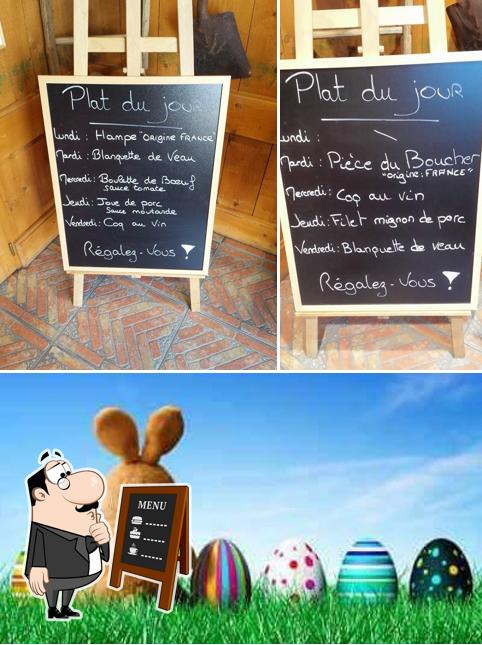 Plat du jour
Lundi : Hampe "ORIGINE FRANCE"
Mardi : Blanquette de Veau
Mercredi : Boulette de Bœuf
sauce tomate
Jeudi : Joue de porc
Sauce moutarde
Vendredi : Coq au vin
Régalez-vous !
Plat du jour
undi :
Mardi : Pièce du Boucher
"origine : FRANCE"
Mercredi : Coq au vin
Jeudi : Filet mignon de porc
Vendredi : Blanquette de veau
Régalez-vous !
MENU